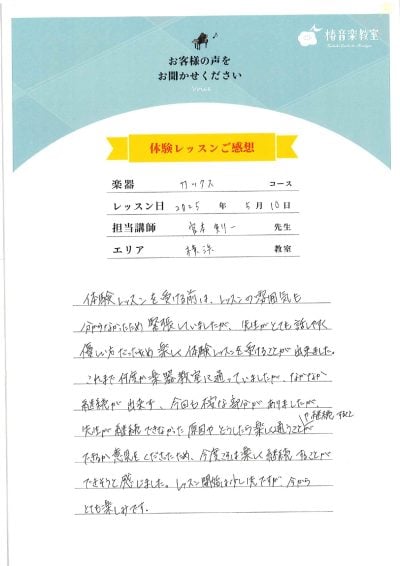 椿音楽教室
お客様の声を
お聞かせください
Voice
体験レッスンご感想
楽器 サックス コース
レッスン日 2025 年 5月 10日
担当講師 先生
エリア 横浜 教室
体験レッスンを受ける前は、レッスンの雰囲気も
分からなかったため緊張していましたが、先生がとても話しやすく
優しい方だったため楽しく体験レッスンを受けることが出来ました。
これまで何度か楽器教室に通っていましたが、なかなか
継続が出来ず、今回も不安な部分がありましたが、
先生が継続できなかった原因やどうしたら楽しく通うことが
や継続すること
できるか意見をくださったため、今度こそは楽しく継続することが
できそうと感じました。レッスン開始は少し先ですが、今から
とても楽しみです。